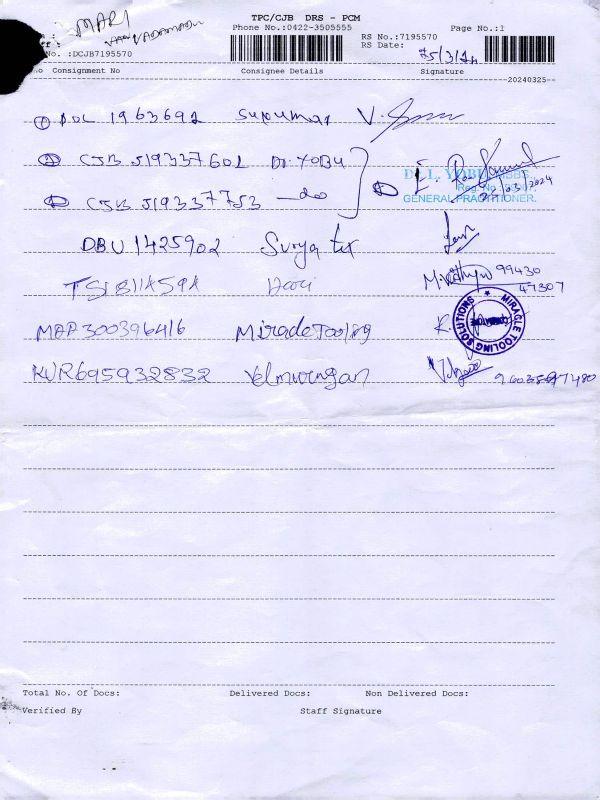 TPC/CJB DRS - PCM
MARI
Phone No.:0422-3505555 Page No.:1
RS No.:7195570
RS Date: 25/3/24
No. :DCJB7195570
Consignment No Consignee Details Signature
20240325
① 1963692 Sukumar V.
② CJB 519337602 Dr. YOBU
CJB 519337753 —do
DR. L. YOBU MBBS.,
Reg. No.
25/03/2024
GENERAL PRACTITIONER.
DBU 1425902 Surya tex
Hari 99430
47307
MAA300396416 Miracle Tooling
MIRACLE TOOLING SOLUTIONS
KUR695932832 Velmurugan
Total No. Of Docs: Delivered Docs: Non Delivered Docs:
Verified By Staff Signature